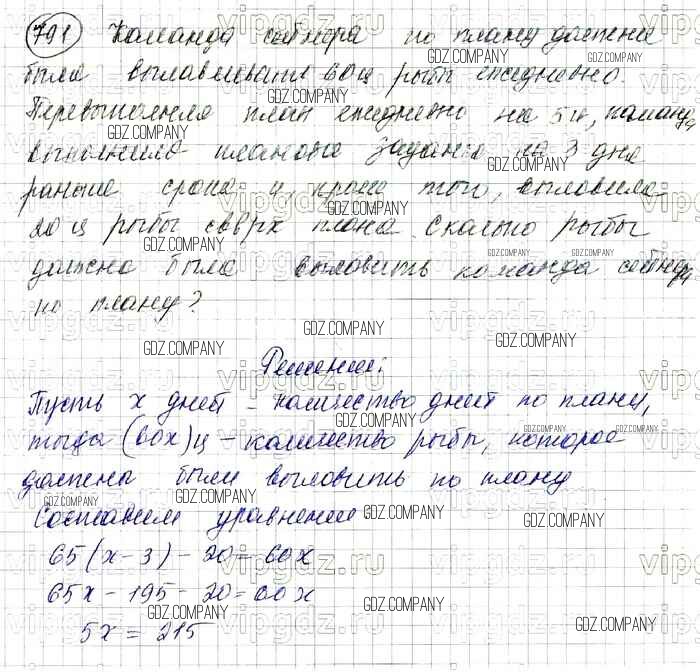 791 Команда сейнера по плану должна
была вылавливать 60ц рыбы ежедневно.
Перевыполняя план ежедневно на 5ц, команда
выполнила плановое задание на 3 дня
раньше срока и, кроме того, выловила
20 ц рыбы сверх плана. Сколько рыбы
должна была выловить команда сейнера
по плану?
Решение:
Пусть х дней - количество дней по плану,
тогда (60х)ц - количество рыбы, которое
должены были выловить по плану
Составим уравнение
65(х-3)-20=60х
65х-195-20=60х
5х=215
vipgdz.ru
GDZ.COMPANY